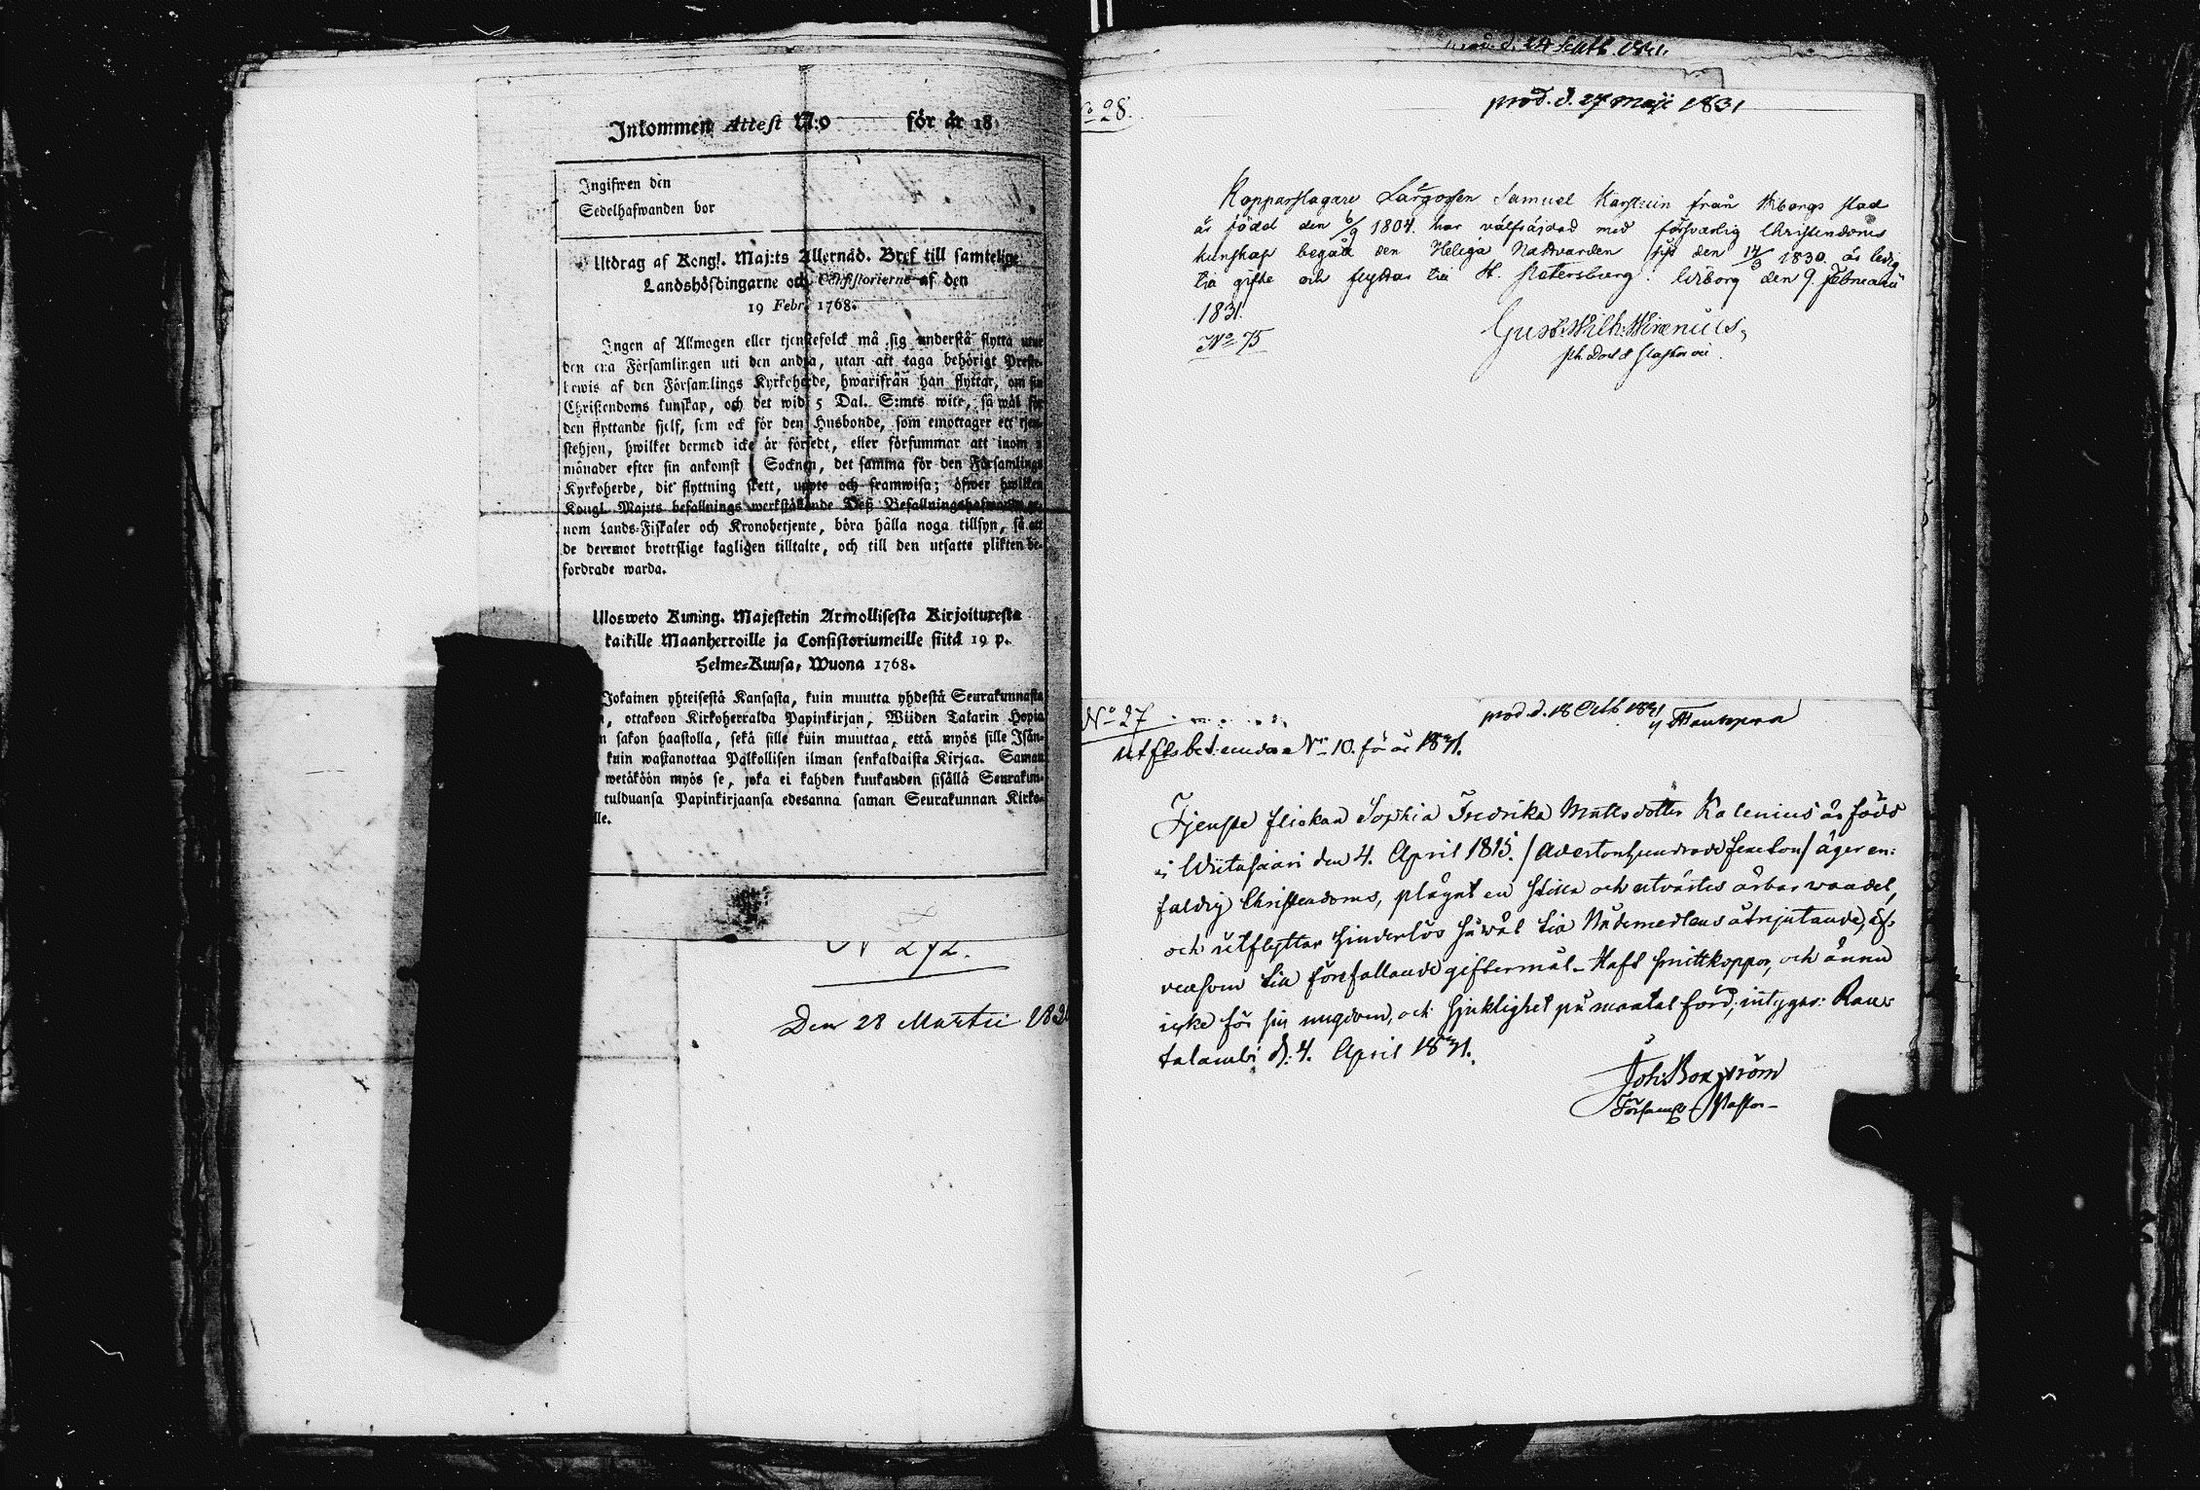 Inkommen Attest N:o för år 18
Ingifwen den
Sedelhafwanden bor
Utdrag af Kongl. Maj:ts Allernåd. Bref till samtelige
Landshöfdingarne och Consistorierne af den
19 Febr. 1768.
Ingen af Allmogen eller tjenstefolck må sig understå flytta utur
den ena Församlingen uti den andra, utan att taga behörigt Preste-
bewis af den Församlings Kyrkoherde, hwarifrån han flyttar, om sin
Christendoms kunskap, och det wid 5 Dal. S:mts wite, så wäl för
den flyttande sjelf, som ock för den Husbonde, som emottager ett tjen-
stehjon, hwilket dermed icke är försedt, eller försummar att inom
månader efter sin ankomst i Socknen, det samma för den Församlings
Kyrkoherde, dit flyttning skett, uppte och framwisa; öfwer hwilken
Kongl. Maj:ts befallnings werkställande Deß Befallningshafwande ge-
nom Lands-Fiskaler och Kronobetjente, böra hålla noga tillsyn, så att
de deremot brottslige lagligen tilltalte, och till den utsatte plikten be-
fordrade warda.
Ulosweto Kuning. Majestetin Armollisesta Kirjoituresta
kaikille Maanherroille ja Consistoriumeille siitä 19 p.
Helme-Kuusa, Wuona 1768.
Jokainen yhteisestä Kansasta, kuin muutta yhdestä Seurakunnasta
, ottakoon Kirkoherralda Papinkirjan, Wiiden Talarin Hopia
n sakon haastolla, sekä sille kuin muuttaa, että myös sille Isän-
kuin wastanottaa Palkollisen ilman senkaldaista Kirjaa. Saman
wetäköön myös se, joka ei kahden kuukauden sisällä Seurakun-
tulduansa Papinkirjaansa edesanna saman Seurakunnan Kirko-
lle.
N 272.
Den 28 Martii 183
28.
prod. d. 27 Maji 1831
Kopparslagare Samuel från Wiborgs stad
är född den 6/9 1804. har med försvarlig Christendoms
kunskap begått den Heliga Nattvarden sist den 14/3 1830. är ledig
till gifte och flyttar till St. Petersburg. Wiborg den 9. Februarii
1831.
No 75
Gust. Wilh.
No 27
prod. d. 18 Octb 1831
No 10. för år 1831.
Tjenste flickan Sophia Fredrika Mattsdotter Kalenius är född
i Wiitasaari den 4. April 1815. / Adertonhundrade femton / äger en-
faldig Christendoms, plägat en stilla och utvärtes ärbar wandel,
och utflyttar hinderlös såwäl till Nådemedlens åtnjutande, äf-
vensom till förefallande giftermål. Haft smittkoppor, och ännu
icke för sin ungdom, och sjuklighet på mantal förd; intygar: Rau-
talambi d. 4. April 1831.
Joh: Borgström
Församl. Pastor